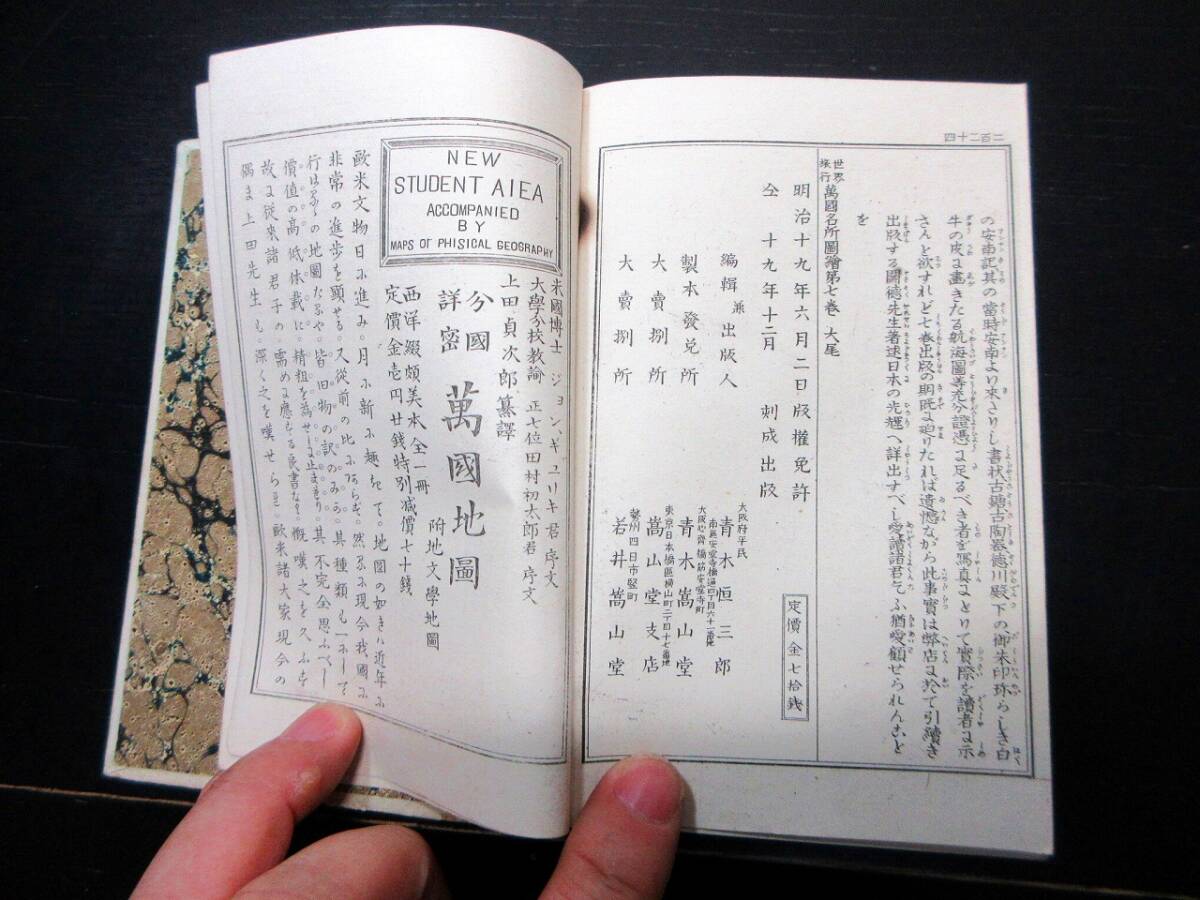 二百二十四
の安南記其の當時安南より來さりし書状古鏡古陶器德川殿下の御朱印珎らしき白
牛の皮に畫きたる航海圖等充分證憑に足るべき者を寫真にとりて實際を讀者に示
さんと欲すれど七巻出版の期既に廹りたれば遺憾ながら此事實は弊店に於て引續き
出版する圖德先生著述日本の光輝へ詳出すべし愛讀諸君乞ふ猶愛顧せられんこと
を
世界旅行萬國名所圖繪第七巻 大尾
明治十九年六月二日版權免許
仝 十九年十二月 刻成出版
定價金七拾錢
編輯兼出版人
大阪府平民
青木恒三郎
南區安堂寺橋通四丁目六十一番地
製本發兌所
大阪心齋橋筋安堂寺町
青木嵩山堂
大賣捌所
東京日本橋區横山町二丁目十七番地
嵩山堂支店
大賣捌所
勢州四日市竪町
若井嵩山堂
NEW
STUDENT AIEA
ACCOMPANIED
BY
MAPS OF PHISICAL GEOGRAPHY
米國博士 ジョン、ギユリキ君 序文
大學分校教諭 正七位田村初太郎君 序文
上田貞次郎纂譯
分國詳密 萬國地圖
附地文學地圖
西洋綴頗美本全一冊
定價金壱円廿錢特別减價七十錢
歐米文物日に進み月に新に趣きて地圖の如きハ近年に
非常の進歩を顕せる又從前の比にあらず然るに現今我國に
行はるゝの地圖たるや皆旧物の訳のみのみ其種類も一にして
價値の高低体裁に精粗を為せしに止まり其不完全思ふべし
故に從來諸君子の需めに應ずる良書なき慨嘆之を久ふす
獨ま上田先生も深く之を嘆せられ歐米諸大家現今の